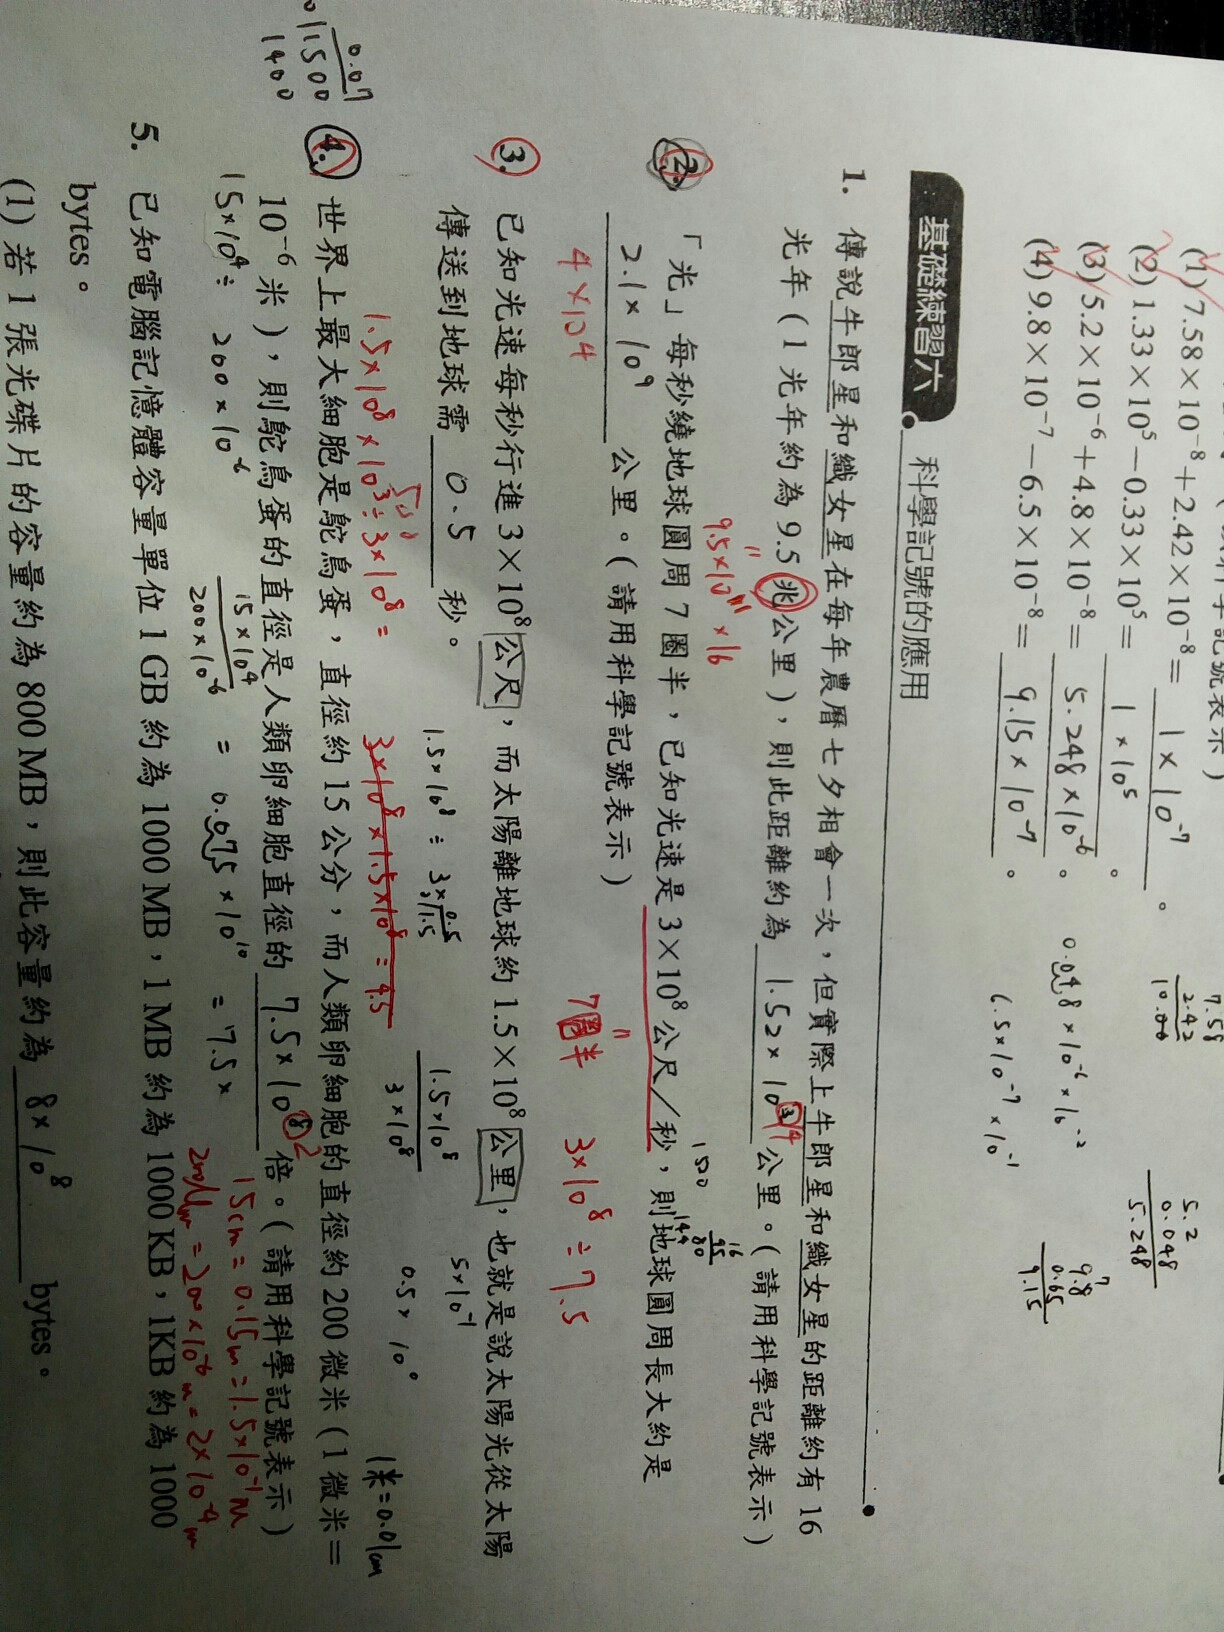 (1) 7.58×10⁻⁸+2.42×10⁻⁸= 1×10⁻⁷ 。
(2) 1.33×10⁵-0.33×10⁵= 1×10⁵ 。
(3) 5.2×10⁻⁶+4.8×10⁻⁸= 5.248×10⁻⁶ 。
(4) 9.8×10⁻⁷-6.5×10⁻⁸= 9.15×10⁻⁷ 。
7.58
2.42
10.00
0.048×10⁻⁶×10⁻²
6.5×10⁻⁷×10⁻¹
5.2
0.048
5.248
9.8
0.65
9.15
基礎練習六 科學記號的應用
1. 傳說牛郎星和織女星在每年農曆七夕相會一次,但實際上牛郎星和織女星的距離約有 16
光年(1 光年約為 9.5 兆公里),則此距離約為 1.52×10 14 公里。(請用科學記號表示)
9.5×10¹¹×16
16
95
80
144
1520
2. 「光」每秒繞地球圓周 7 圈半,已知光速是 3×10⁸ 公尺/秒,則地球圓周長大約是
2.1×10⁹ 公里。(請用科學記號表示)
4×10⁴
7圈半 3×10⁸÷7.5
3. 已知光速每秒行進 3×10⁸ 公尺,而太陽離地球約 1.5×10⁸ 公里,也就是說太陽光從太陽
傳送到地球需 0.5 秒。
500
1.5×10⁸÷3×
0.5
1.5
1.5×10⁸
3×10⁸
5×10⁻¹
0.5×10⁰
1.5×10⁸×10³÷3×10⁸=
3×10⁸×1.5×10⁸=4.5
1米=0.01cm
4. 世界上最大細胞是鴕鳥蛋,直徑約 15 公分,而人類卵細胞的直徑約 200 微米(1 微米=
10⁻⁶ 米),則鴕鳥蛋的直徑是人類卵細胞直徑的 7.5×10⁸ 2 倍。(請用科學記號表示)
15×10⁴÷ 200×10⁻⁶
15×10⁴
200×10⁻⁶
= 0.075×10¹⁰ = 7.5×
15cm=0.15m=1.5×10⁻¹m
=200×10⁻⁶m=2×10⁻⁴m
0.07
1500
1400
5. 已知電腦記憶體容量單位 1 GB 約為 1000 MB,1 MB 約為 1000 KB,1KB 約為 1000
bytes。
(1) 若 1 張光碟片的容量約為 800 MB,則此容量約為 8×10⁸ bytes。